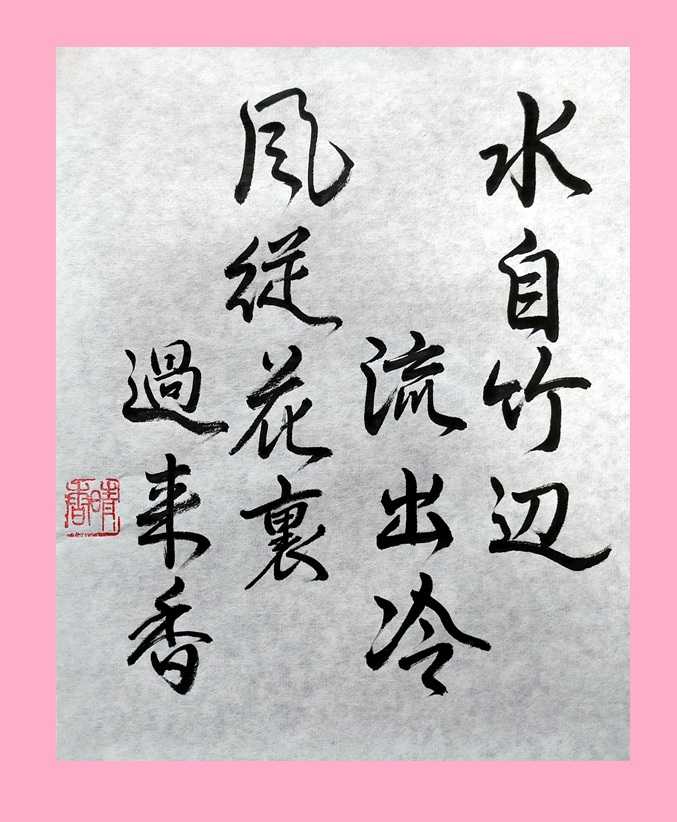 水自竹辺
流出冷
風従花裏
過来香